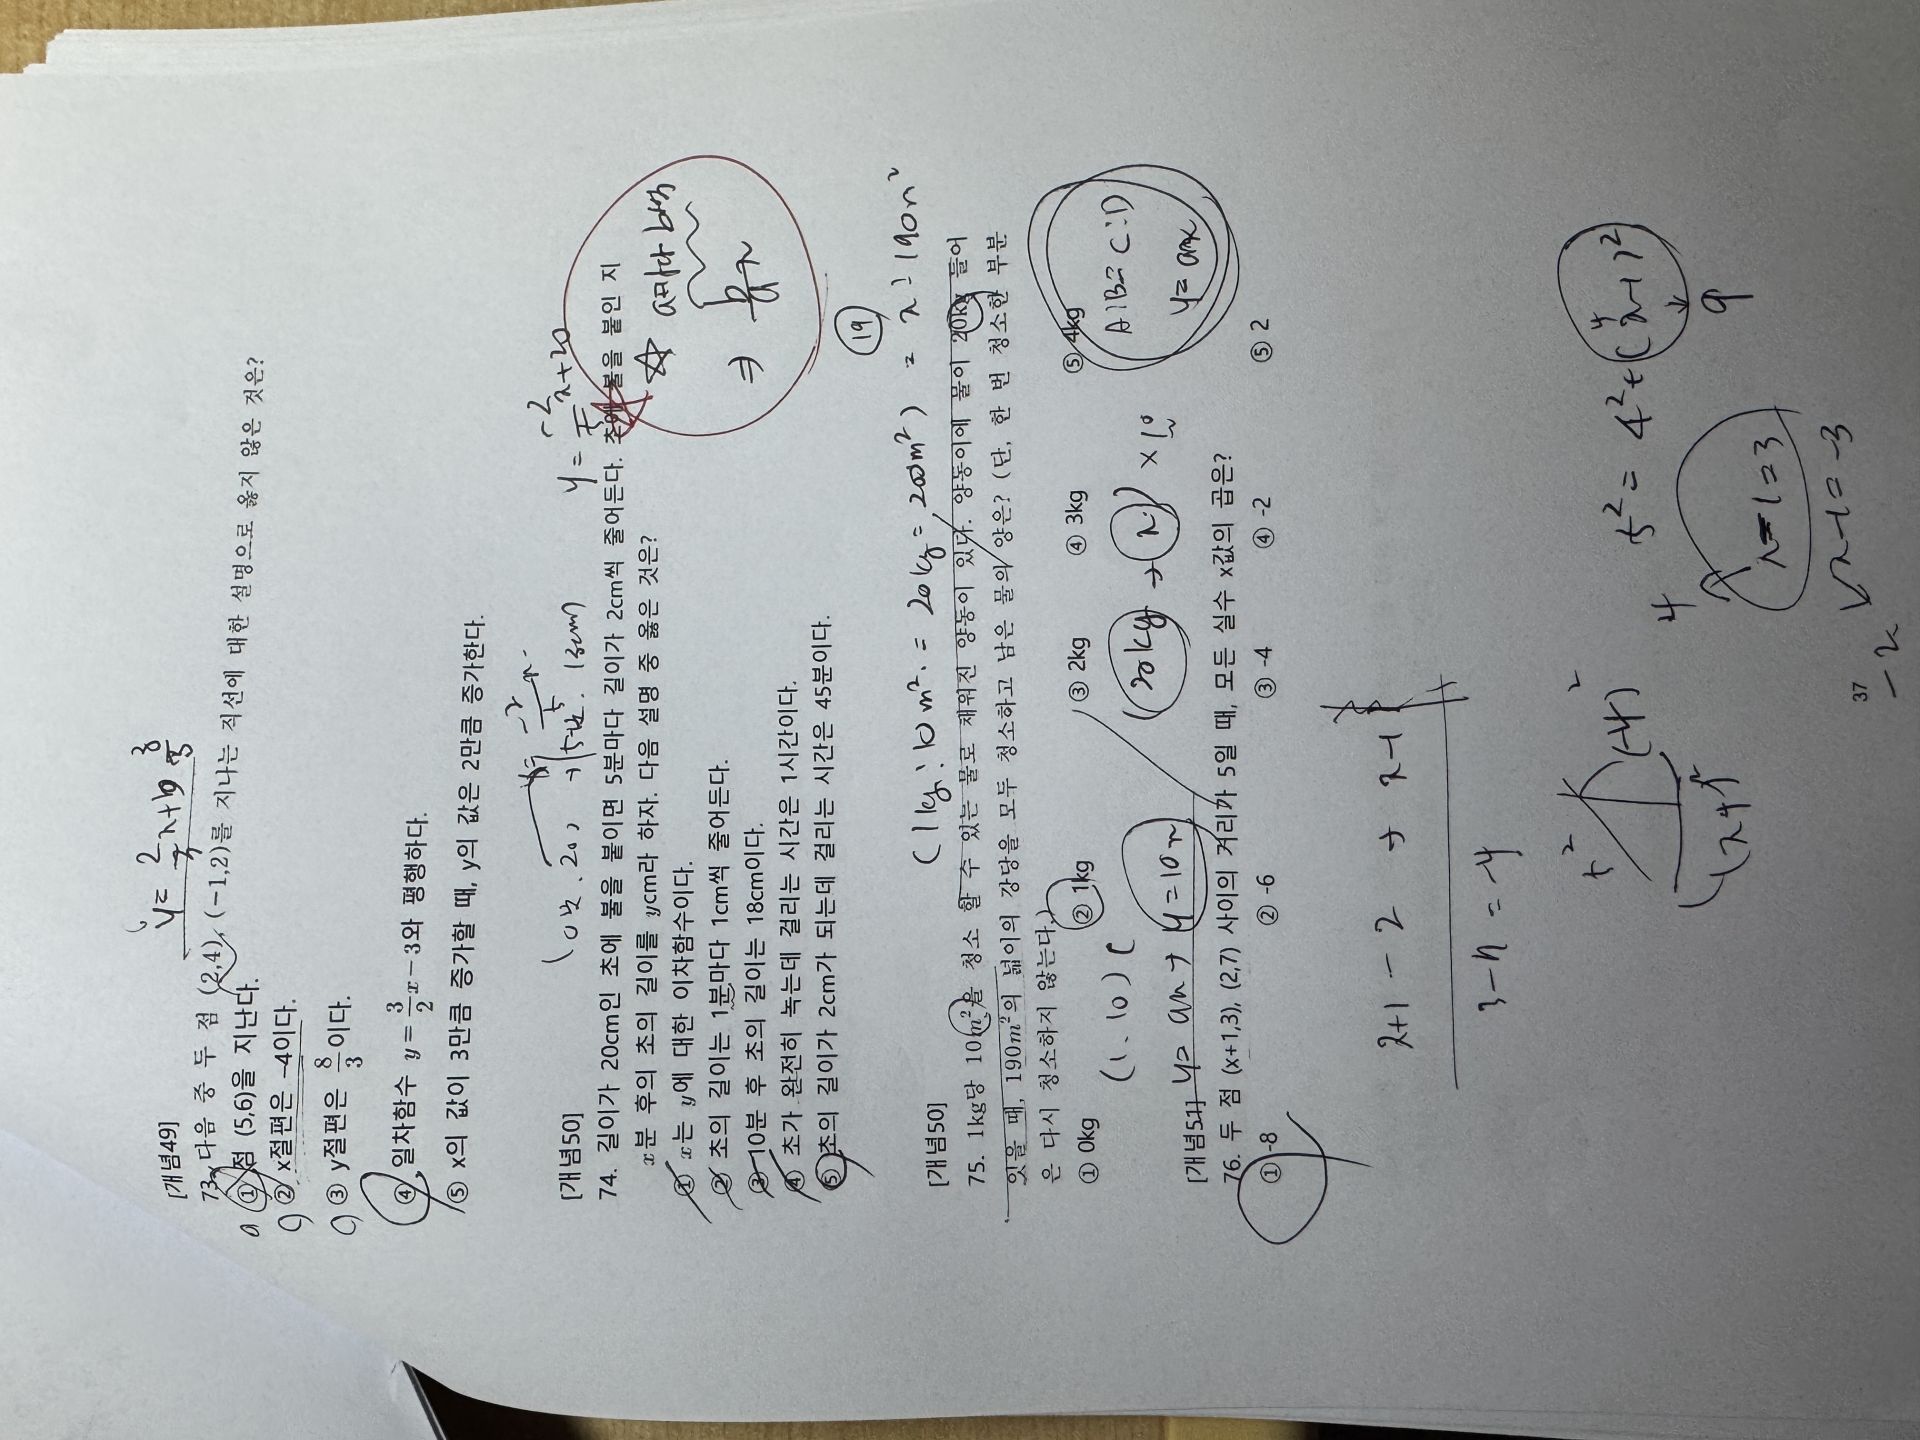 [개념49]
73. 다음 중 두 점 (2,4), (-1,2)를 지나는 직선에 대한 설명으로 옳지 않은 것은?
① 점 (5,6)을 지난다.
② x절편은 -4이다.
③ y절편은 8/3이다.
④ 일차함수 y = 3/2 x - 3와 평행하다.
⑤ x의 값이 3만큼 증가할 때, y의 값은 2만큼 증가한다.
y = -2/5 x + 20
[개념50]
74. 길이가 20cm인 초에 불을 붙이면 5분마다 길이가 2cm씩 줄어든다. 초에 불을 붙인 지
x분 후의 초의 길이를 ycm라 하자. 다음 설명 중 옳은 것은?
① x는 y에 대한 이차함수이다.
② 초의 길이는 1분마다 1cm씩 줄어든다.
③ 10분 후 초의 길이는 18cm이다.
④ 초가 완전히 녹는데 걸리는 시간은 1시간이다.
⑤ 초의 길이가 2cm가 되는데 걸리는 시간은 45분이다.
19
(1kg : 10m² = 20kg = 200m²) = x = 190m²
[개념50]
75. 1kg당 10m²을 청소 할 수 있는 물로 채워진 양동이 있다. 양동이에 물이 20kg 들어
있을 때, 190m²의 넓이의 강당을 모두 청소하고 남은 물의 양은? (단, 한 번 청소한 부분
은 다시 청소하지 않는다.)
① 0kg ② 1kg ③ 2kg ④ 3kg ⑤ 4kg
A:B = C:D
y = ax
(1, 10)
(20kg → x) × 10
y = ax → y = 10x
[개념51]
76. 두 점 (x+1,3), (2,7) 사이의 거리가 5일 때, 모든 실수 x값의 곱은?
① -8 ② -6 ③ -4 ④ -2 ⑤ 2
x+1 - 2 → x-1
3-7 = -4
5² = 4² + (x-1)²
9
x-1 = 3
4
x-1 = -3
-2
5²
(-4)²
37